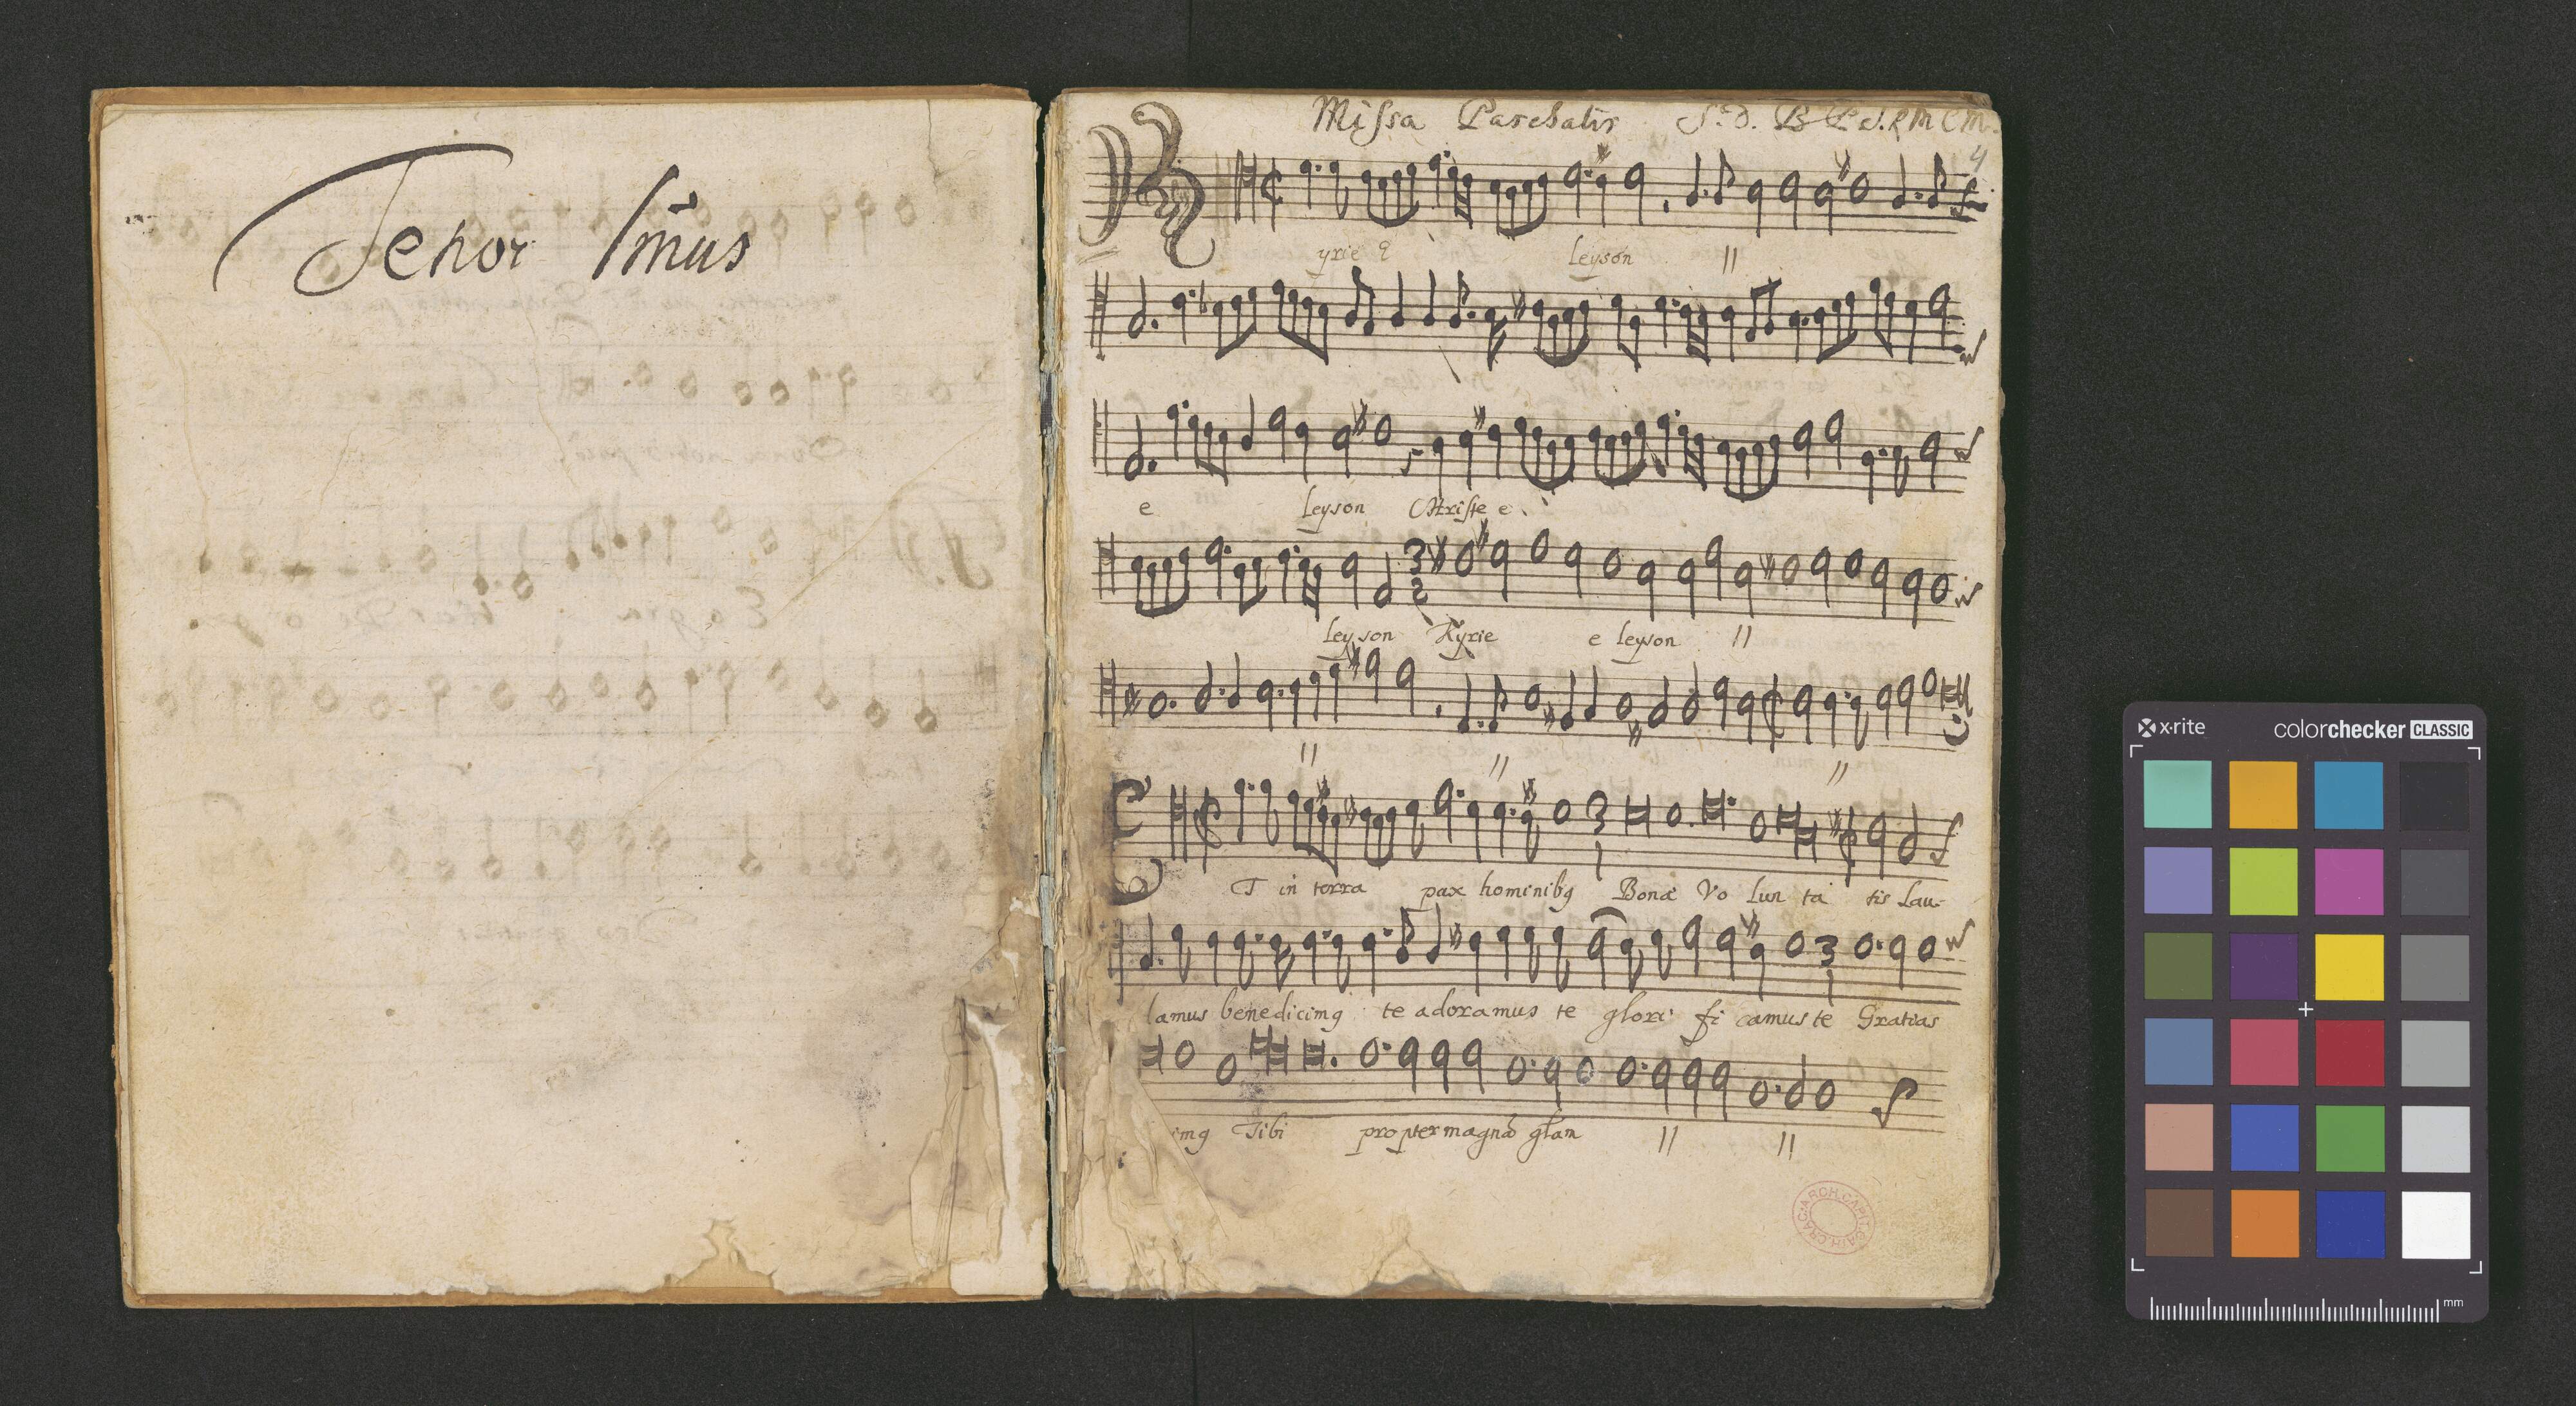 Tenor Imus
Missa Paschalis S.D. B P S.R M C M.
4
yrie e leyson //
e leyson Christe e
leyson Kyrie e leyson //
// // //
T in terra pax hominibg Bonæ Vo lun ta tis Lau-
lamus benedicimg te adoramus te glori fi camus te Gratias
img Tibi propter magnã glam // //
ARCH. CAPIT. CATH. CRAC.
x-rite colorchecker CLASSIC
mm